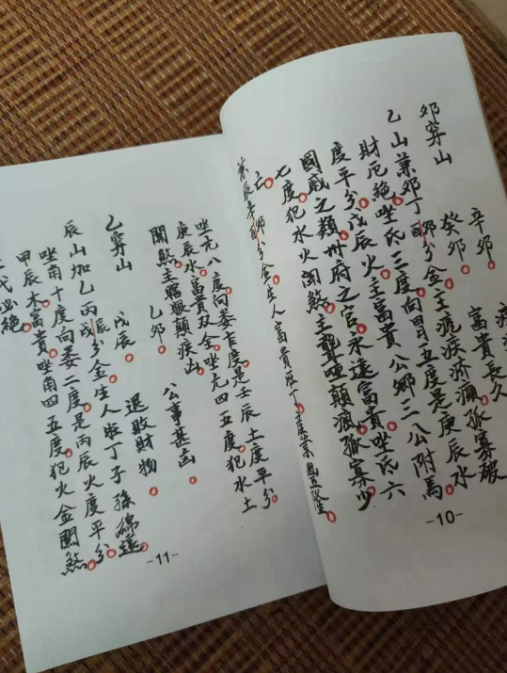 辛卯
卯穿山 癸卯 富貴長久
乙山兼卯丁卯分金主瘋疾疥瀰孤寡破
財厄絕坐氐三度向胃五度是庚辰水
度平分戊辰火主富貴公卿二公附馬
國戚之類州府之官永遠富貴坐氐六
七度犯水火關煞主聾啞顛瘋孤寡少
亡 卯分金生人富貴旺丁
-10-
坐亢八度向婁七度是壬辰土度平分
庚辰水富貴双全坐亢四五度犯水土
關煞主窮賤顛疾凶
乙卯 公事甚凶
乙穿山 戊辰 退敗財物
辰山加乙丙戌辰分金生人旺丁子孫綿遠
坐角十度向婁二度是丙辰火度平分
甲辰木富貴坐角四五度犯火金關煞
絕
-11-